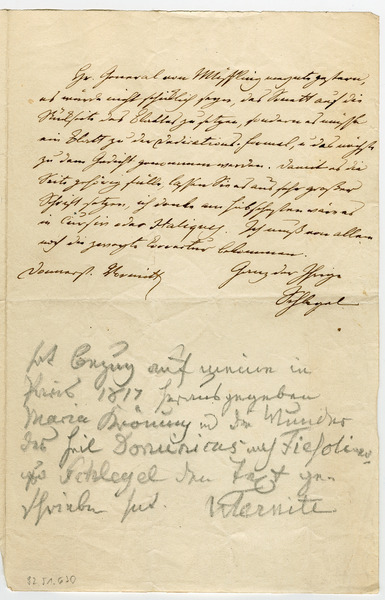 Hr. General von Müffling meynte gestern,
es würde nicht schicklich seyn, das Sonett auf die
Rückseite des Titelblattes zu setzen, sondern es müßte
ein Blatt zu der Dedications-formel, u das nächste
zu dem Gedicht genommen werden. Damit es die
Seite gehörig fülle, lassen Sie es aus sehr großer
Schrift setzen, ich denke am wäre es
in Cursiv oder Italiques. Ich muß von allem
noch die Correctur bekommen.
Donnerst. Vormitt. Ganz der Ihrige
Schlegel
hat bezug auf meine in
Paris 1817 herausgegeben
Maria Krönung u die Wunder
des heil Dominicus nach Fiesole
Schlegel den Text ge
schrieben hat. WTernite